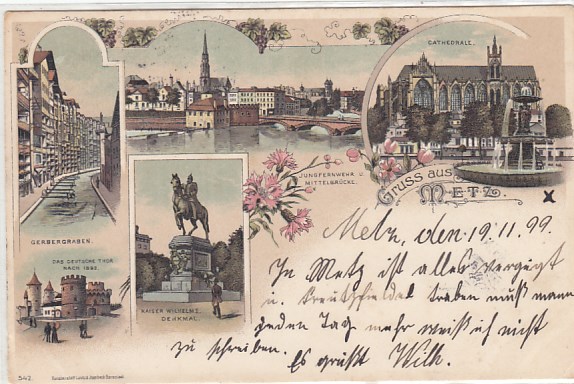 CATHEDRALE.
JUNGFERNWEHR U.
MITTELBRÜCKE.
Gruss aus
METZ.
GERBERGRABEN.
DAS DEUTSCHE THOR
NACH 1892
KAISER WILHELM I.
DENKMAL.
Metz, den 19.11.99.
In Metz ist alles vergnügt
u. kreuzfidel traben muß mann
jeden Tag mehr weiß ich nicht
zu schreiben. Es grüßt Wilh.
542.